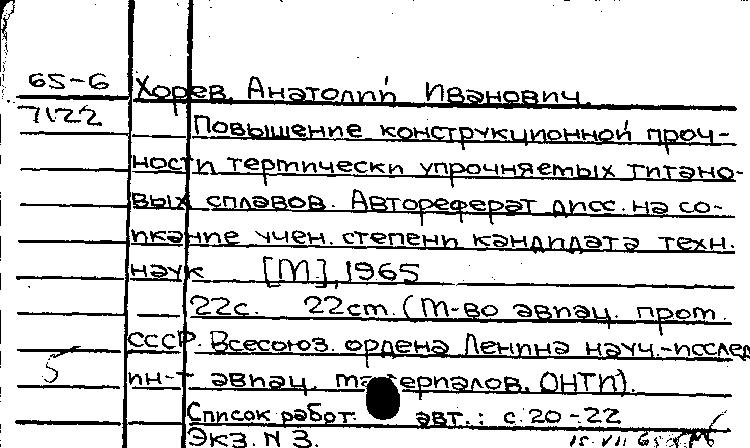 65-6 Хорев, Анатолий Иванович.
7122 Повышение конструкционной проч-
ности термически упрочняемых титано-
вых сплавов. Автореферат дисс. на со-
искание учен. степени кандидата техн.
наук [М.], 1965
22с. 22cm. (М-во авиац. пром.
СССР. Всесоюз. ордена Ленина науч.-исслед.
5 ин-т авиац. материалов. ОНТИ).
Список работ авт.: с. 20-22
Экз. N 3.